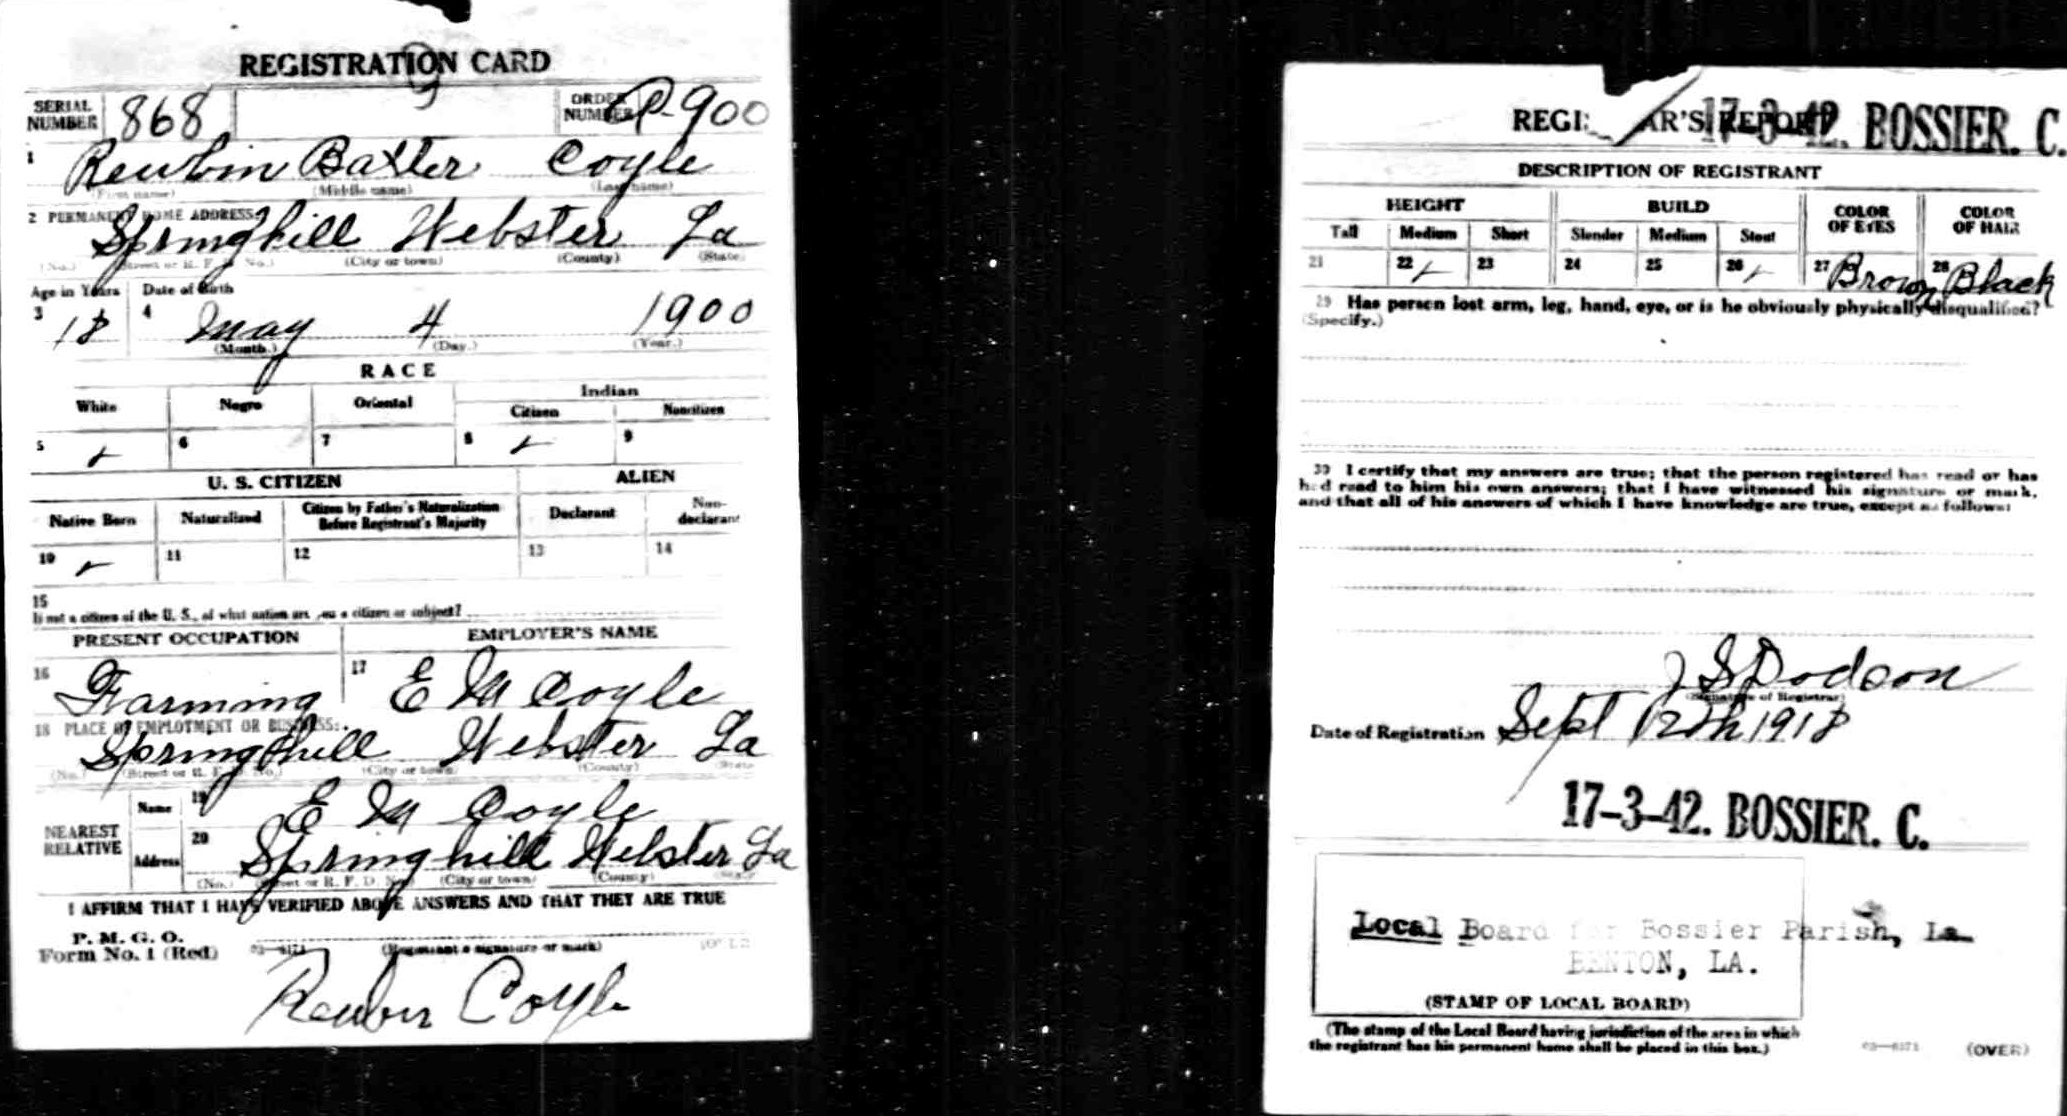 REGISTRATION CARD
SERIAL NUMBER 868 ORDER NUMBER 900
1 Reubin Baxter Coyle
(First name) (Middle name) (Last name)
2 PERMANENT HOME ADDRESS:
Springhill Webster La
(No.) (Street or R. F. D. No.) (City or town) (County) (State)
Age in Years Date of Birth
3 18 4 May 4 1900
(Month.) (Day.) (Year.)
RACE
White Negro Oriental Indian
Citizen Noncitizen
5 ✓ 6 7 8 ✓ 9
U. S. CITIZEN ALIEN
Native Born Naturalized Citizen by Father's Naturalization Before Registrant's Majority Declarant Non-declarant
10 ✓ 11 12 13 14
15
If not a citizen of the U. S., of what nation are you a citizen or subject?
PRESENT OCCUPATION EMPLOYER'S NAME
16 Farming 17 E M Coyle
18 PLACE OF EMPLOYMENT OR BUSINESS:
Springhill Webster La
(No.) (Street or R. F. D. No.) (City or town) (County) (State)
NEAREST RELATIVE Name 19 E M Coyle
Address 20 Springhill Webster La
(No.) (Street or R. F. D. No.) (City or town) (County) (State)
I AFFIRM THAT I HAVE VERIFIED ABOVE ANSWERS AND THAT THEY ARE TRUE
P. M. G. O.
Form No. 1 (Red) 03—6171 (Registrant's signature or mark) (OVER)
Reubin Coyle
REGISTRAR'S REPORT 17-3-42. BOSSIER. C.
DESCRIPTION OF REGISTRANT
HEIGHT BUILD COLOR OF EYES COLOR OF HAIR
Tall Medium Short Slender Medium Stout
21 22 ✓ 23 24 25 26 ✓ 27 Brown 28 Black
29 Has person lost arm, leg, hand, eye, or is he obviously physically disqualified?
(Specify.)
30 I certify that my answers are true; that the person registered has read or has
had read to him his own answers; that I have witnessed his signature or mark,
and that all of his answers of which I have knowledge are true, except as follows:
J S Dodson
(Signature of Registrar)
Date of Registration Sept 12th 1918
17-3-42. BOSSIER. C.
Local Board for Bossier Parish, La.
BENTON, LA.
(STAMP OF LOCAL BOARD)
(The stamp of the Local Board having jurisdiction of the area in which
the registrant has his permanent home shall be placed in this box.)
03—6171 (OVER)